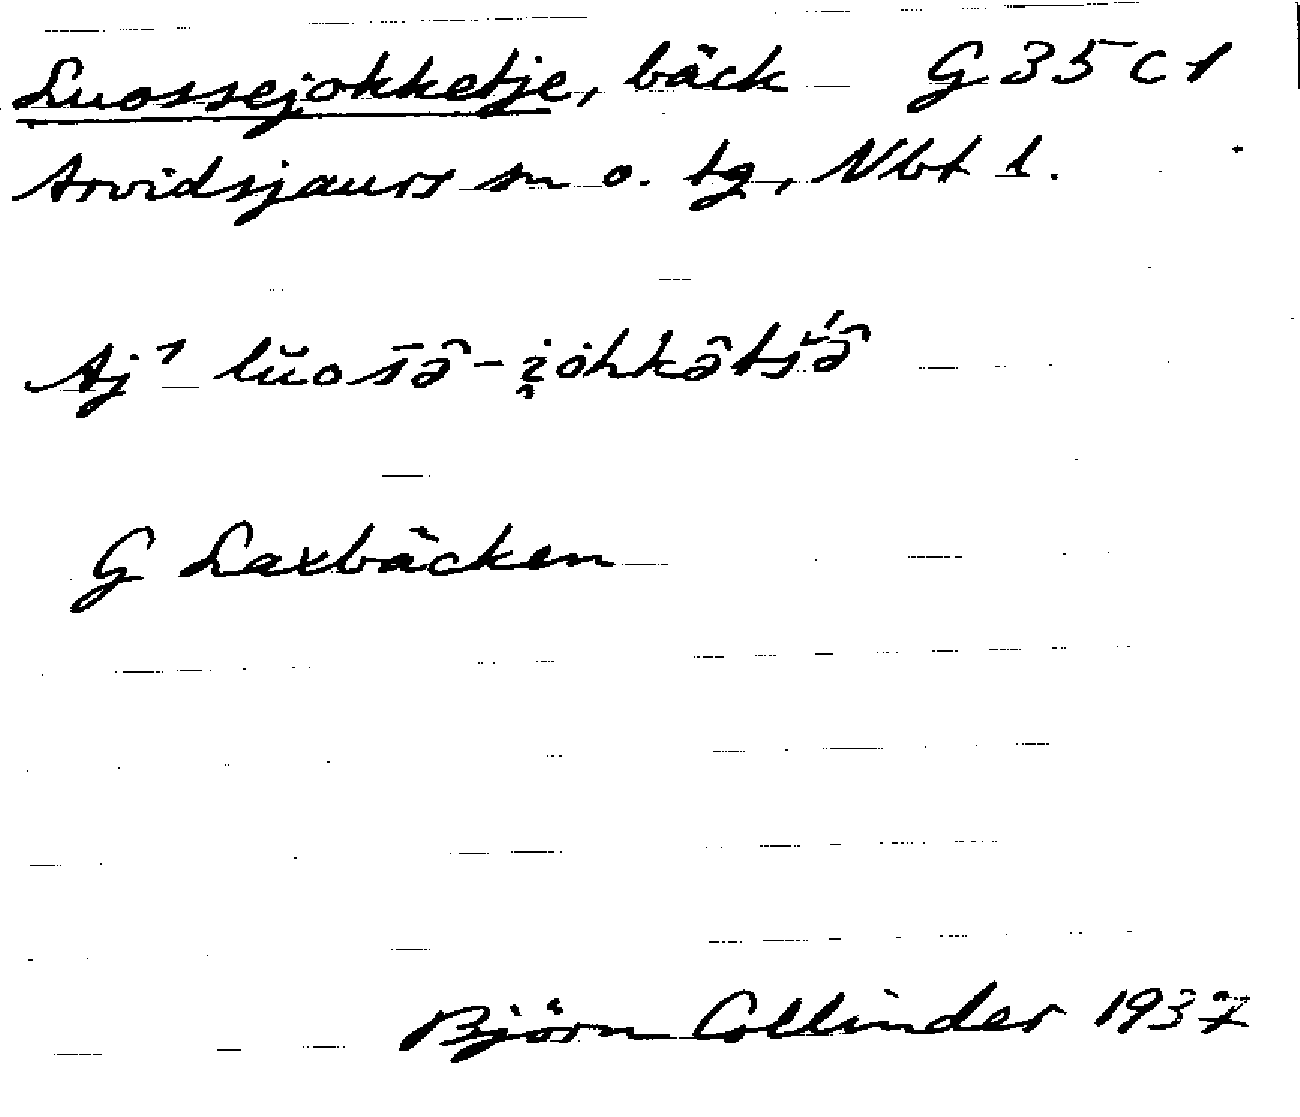 Luossejokketje, bäck G 35 c 1
Arvidsjaurs sn o. tg, Nbt l.
Aj¹ lŭosā̂-i̯ȯhkə̂tś̆ə̂
G Laxbäcken
Björn Collinder 1937